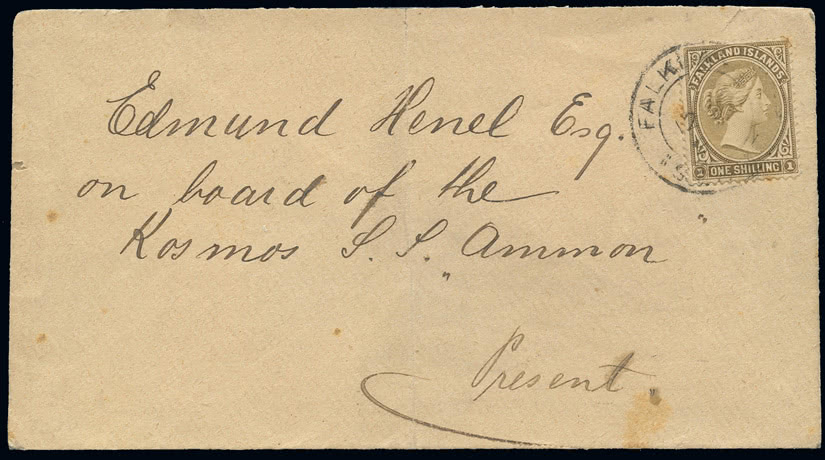 Edmund Henel Esq.
on board of the
Kosmos S. S. "Ammon"
Present.
FALK
FALKLAND ISLANDS
1 ONE SHILLING 1